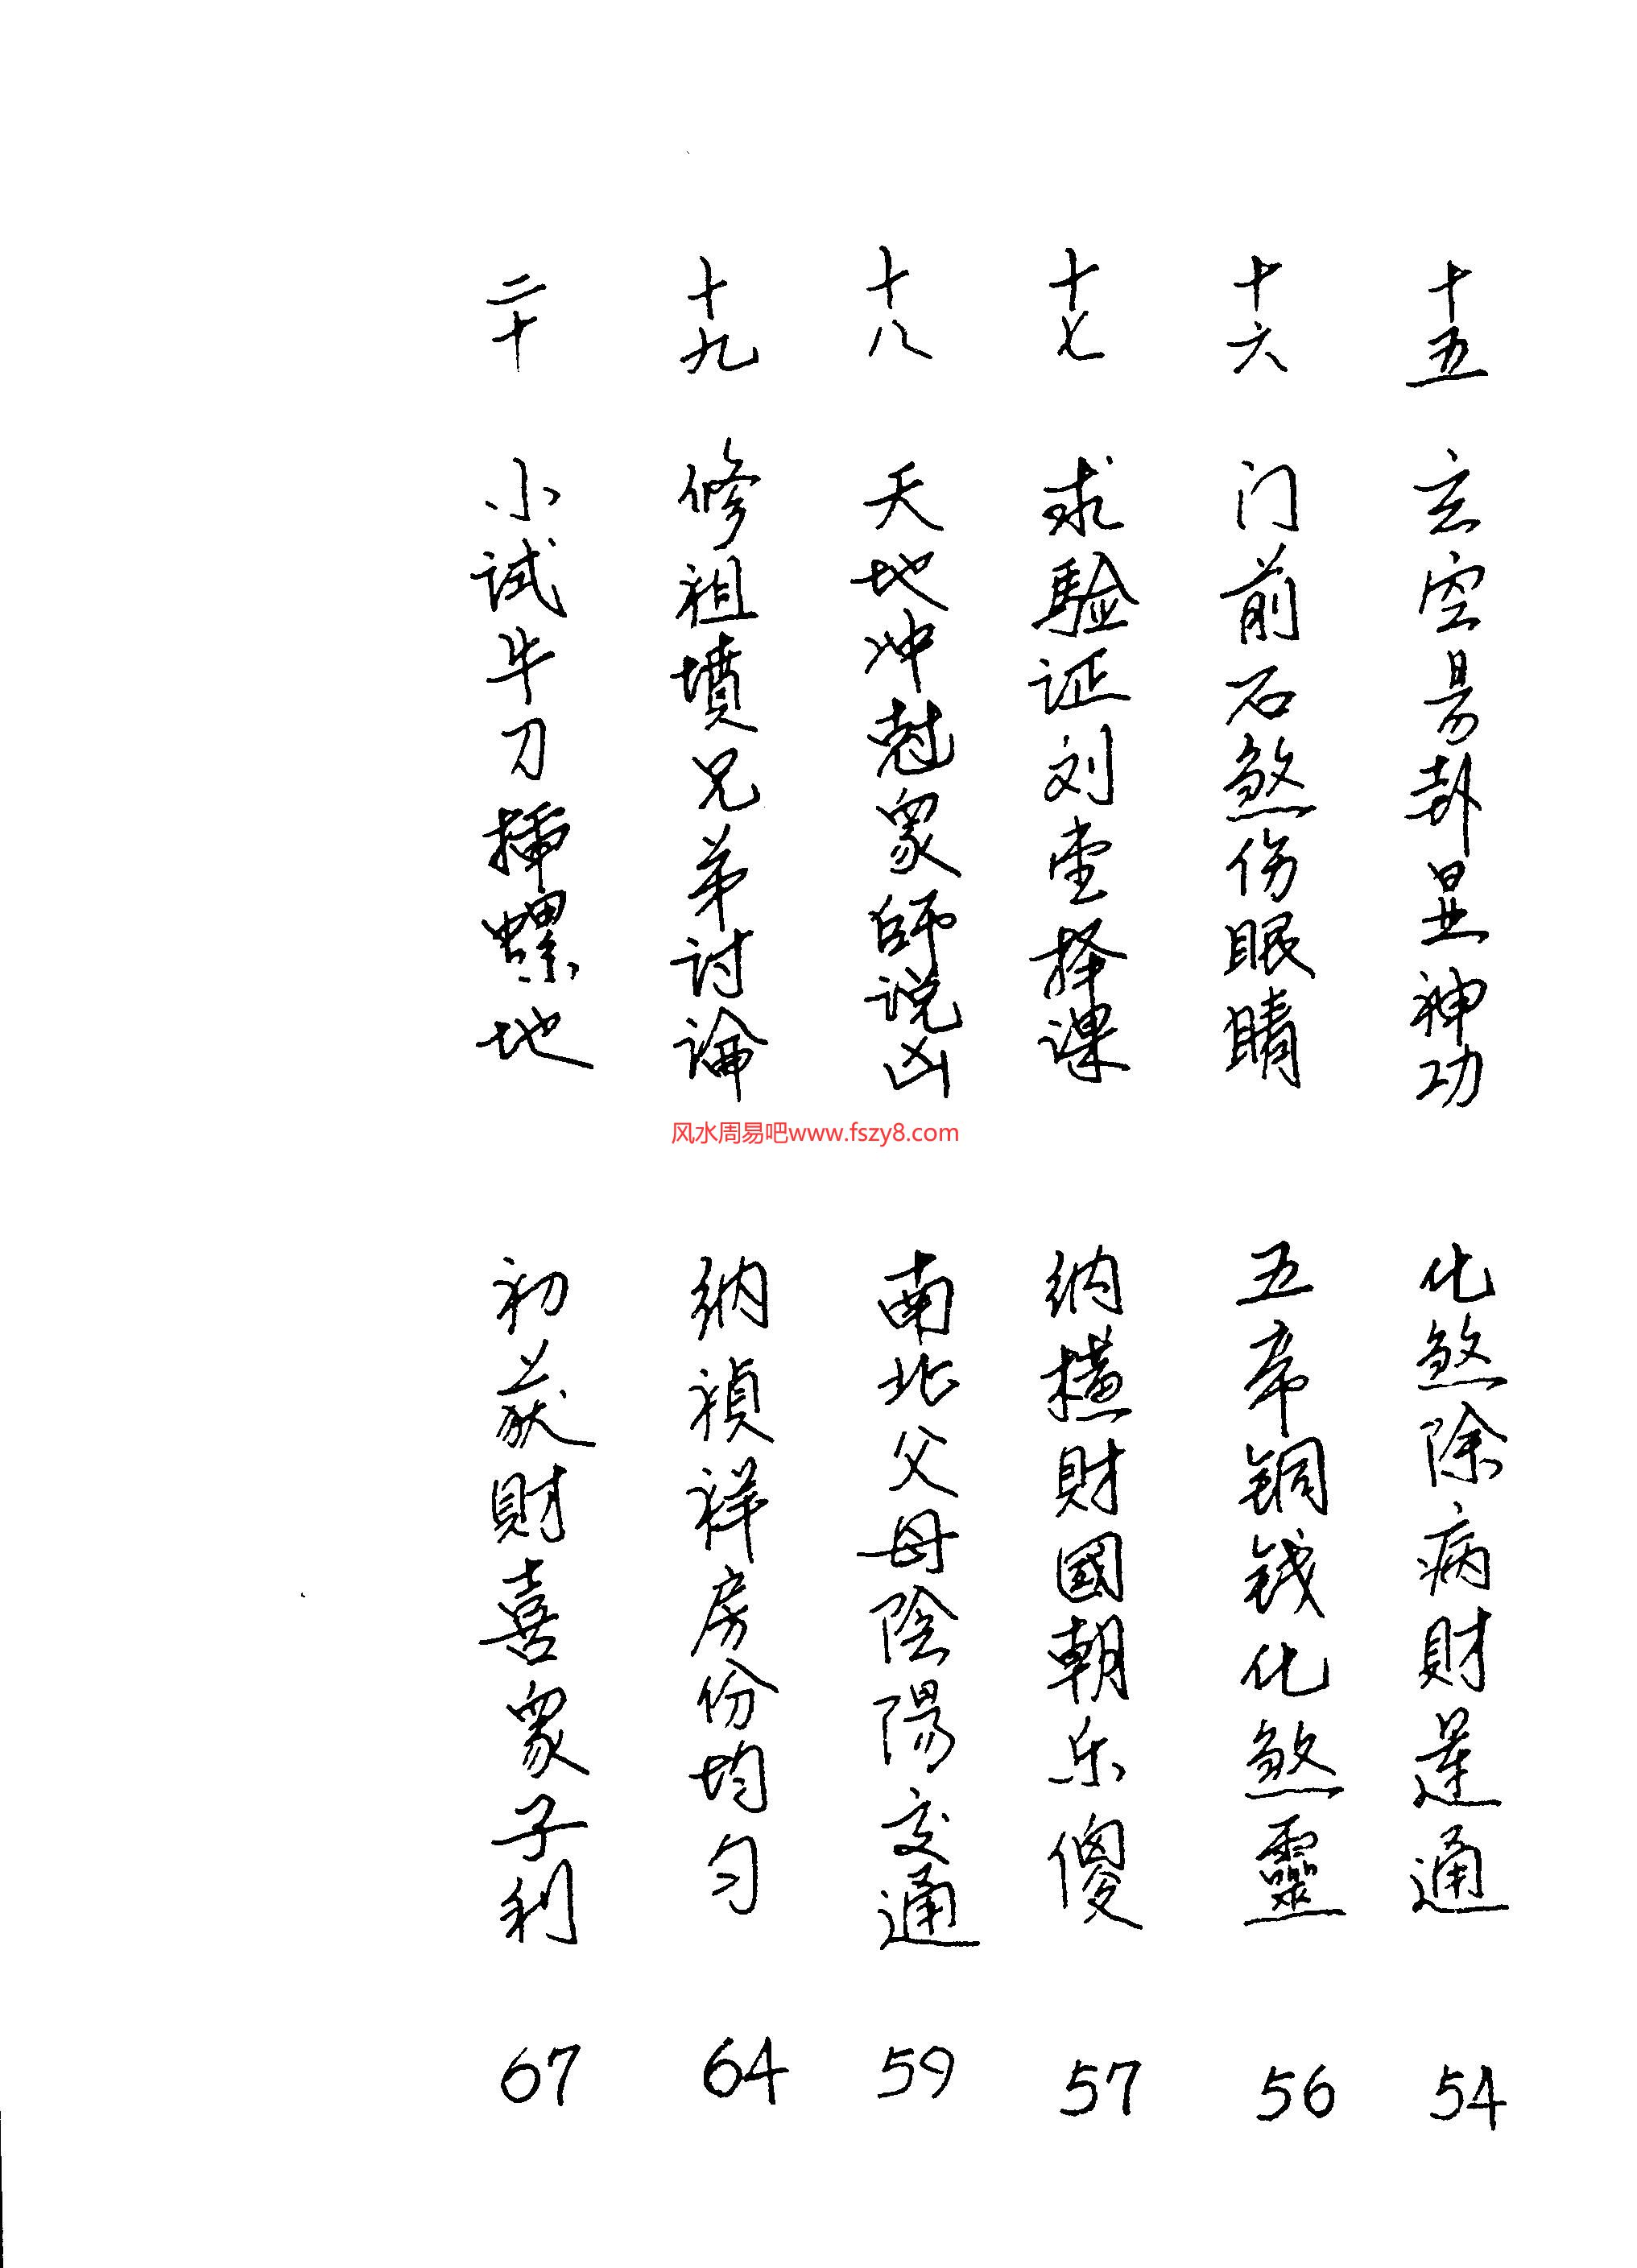 十五 玄空易卦显神功 化煞除病財運通 54
十六 门前石煞伤眼睛 五帝铜钱化煞靈 56
十七 求驗证刘堂择课 纳橫財國朝乐傻 57
十八 天地冲尅眾師说凶 南北父母陰陽交通 59
十九 修祖墳兄弟讨論 纳禎祥房份均匀 64
二十 小试牛刀插螺地 初获財喜眾子利 67
风水周易吧www.fszy8.com